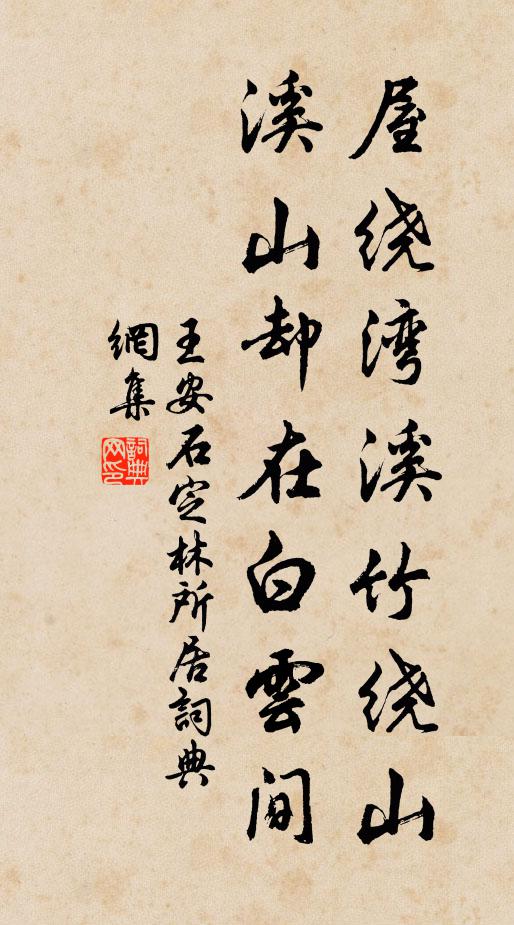 屋绕湾溪竹绕山
溪山却在白雲间
王安石定林所居詞典
網集
詞典
网印